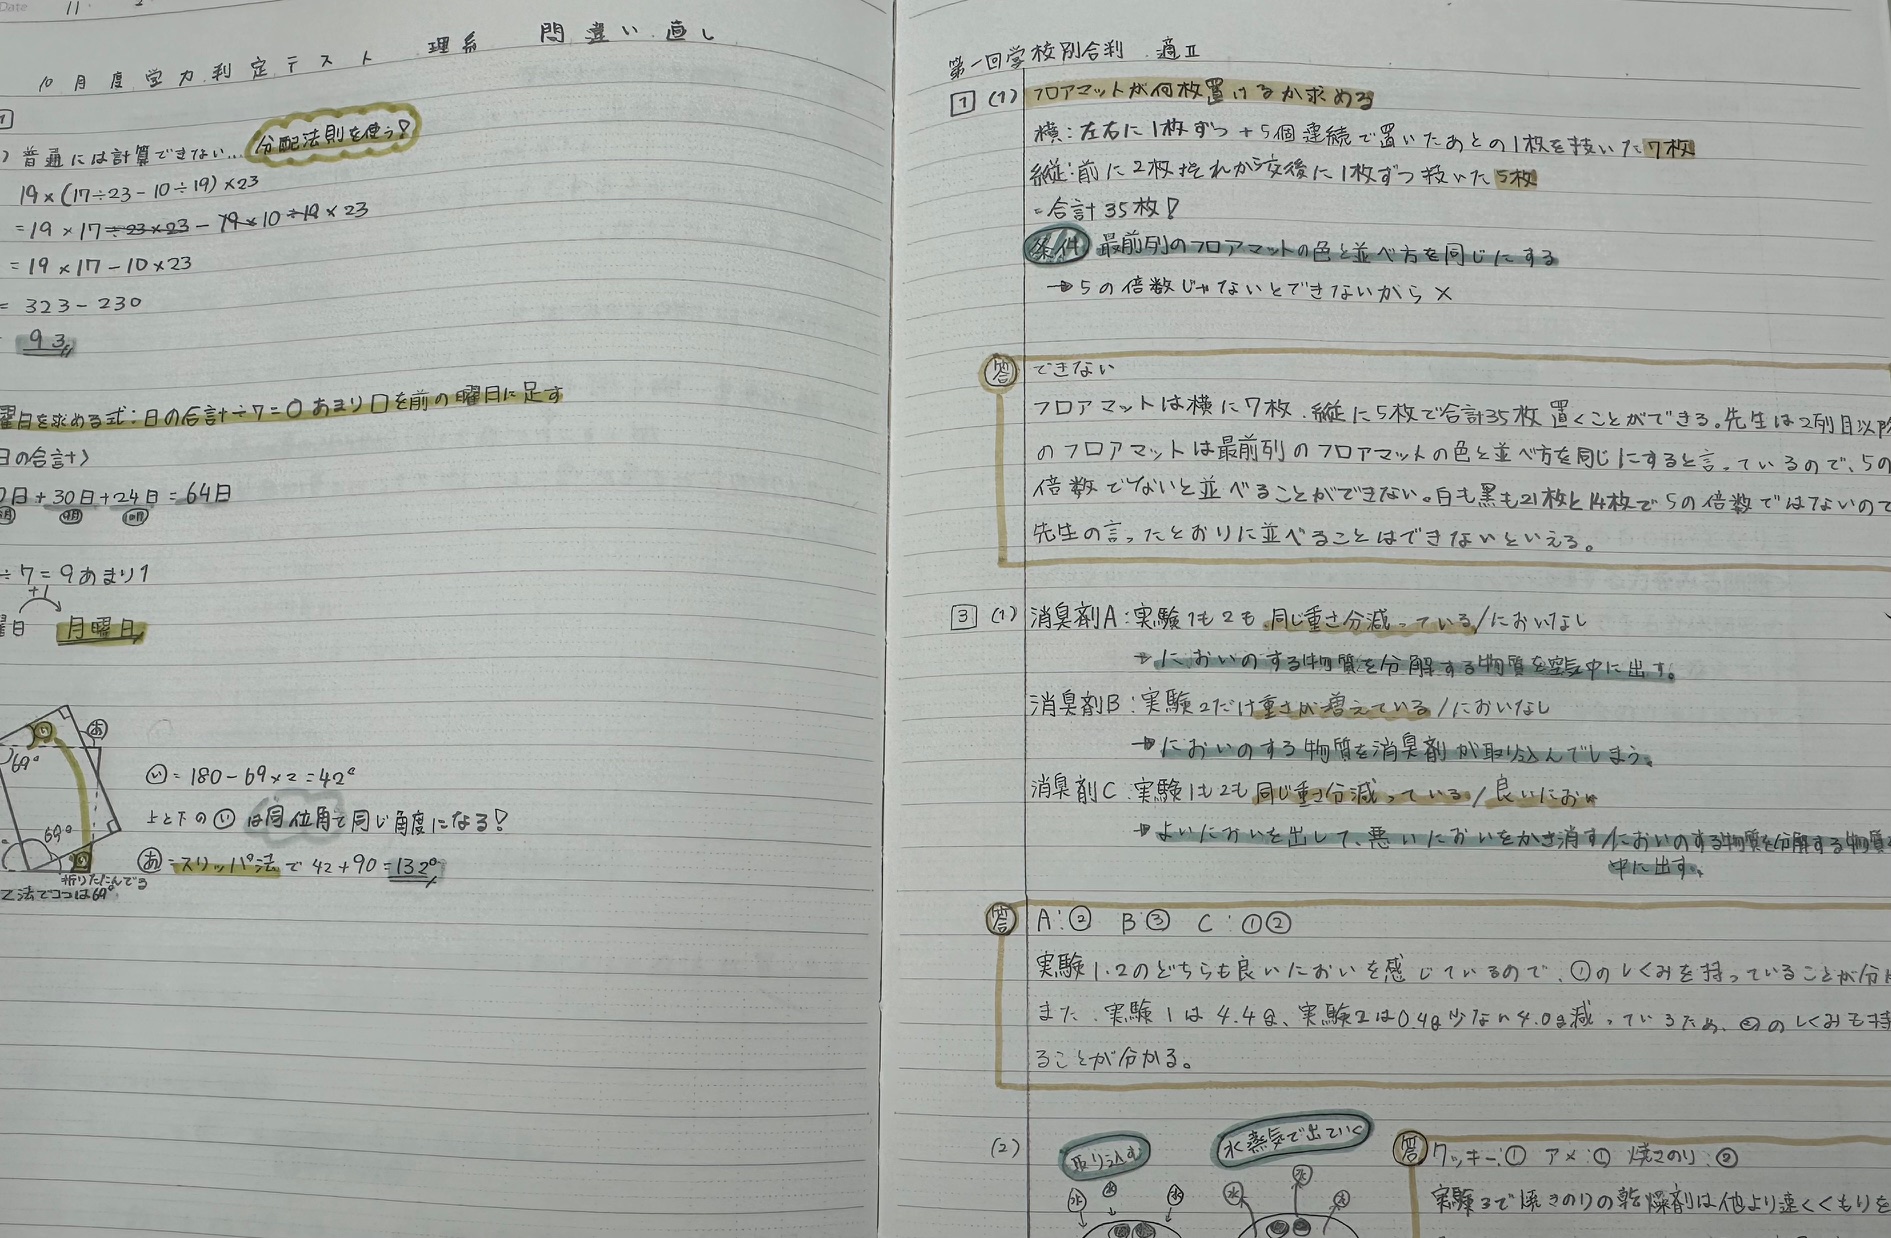 Date 11
10月度学力判定テスト 理系 間違い直し
普通には計算できない… 分配法則を使う!
19×(17÷23-10÷19)×23
=19×17÷23×23-19×10÷19×23
=19×17-10×23
=323-230
93
曜日を求める式:日の合計÷7=○あまり□を前の曜日に足す
日の合計〉
日+30日+24日=64日
9月 10月
÷7=9あまり1
+1
曜日 月曜日
い あ
69°
い=180-69×2=42°
上と下のいは同位角で同じ角度になる!
69°
あ=スリッパ法で42+90=132°
折りたたんでる
Z法でココは69°
第一回学校別合判 適Ⅱ
1 (1) フロアマットが何枚置けるか求める
横:左右に1枚ずつ+5個連続で置いたあとの1枚を抜いた7枚
縦:前に2枚それから後に1枚ずつ抜いた5枚
=合計35枚!
条件 最前列のフロアマットの色と並べ方を同じにする
→5の倍数じゃないとできないから×
答 できない
フロアマットは横に7枚、縦に5枚で合計35枚置くことができる。先生は2列目以降
のフロアマットは最前列のフロアマットの色と並べ方を同じにすると言っているので、5の
倍数でないと並べることができない。白も黒も21枚と14枚で5の倍数ではないので
先生の言ったとおりに並べることはできないといえる。
3 (1) 消臭剤A:実験1も2も同じ重さ分減っている/においなし
→においのする物質を分解する物質を空気中に出す。
消臭剤B:実験2だけ重さが増えている/においなし
→においのする物質を消臭剤が取り込んでしまう。
消臭剤C:実験1も2も同じ重さ分減っている/良いにおい
→よいにおいを出して、悪いにおいをかき消す/においのする物質を分解する物質を
中に出す。
答 A:② B③ C:①②
実験1.2のどちらも良いにおいを感じているので、①のしくみを持っていることが分か
また、実験1は4.4g、実験2は0.4g少ない4.0g減っているため、②のしくみも持
ることが分かる。
(2) 取り込む 水蒸気で出ていく
水 水 水 水 水 水
答 クッキー:① アメ:① 焼きのり:②
実験3で焼きのりの乾燥剤は他より速くくもりを